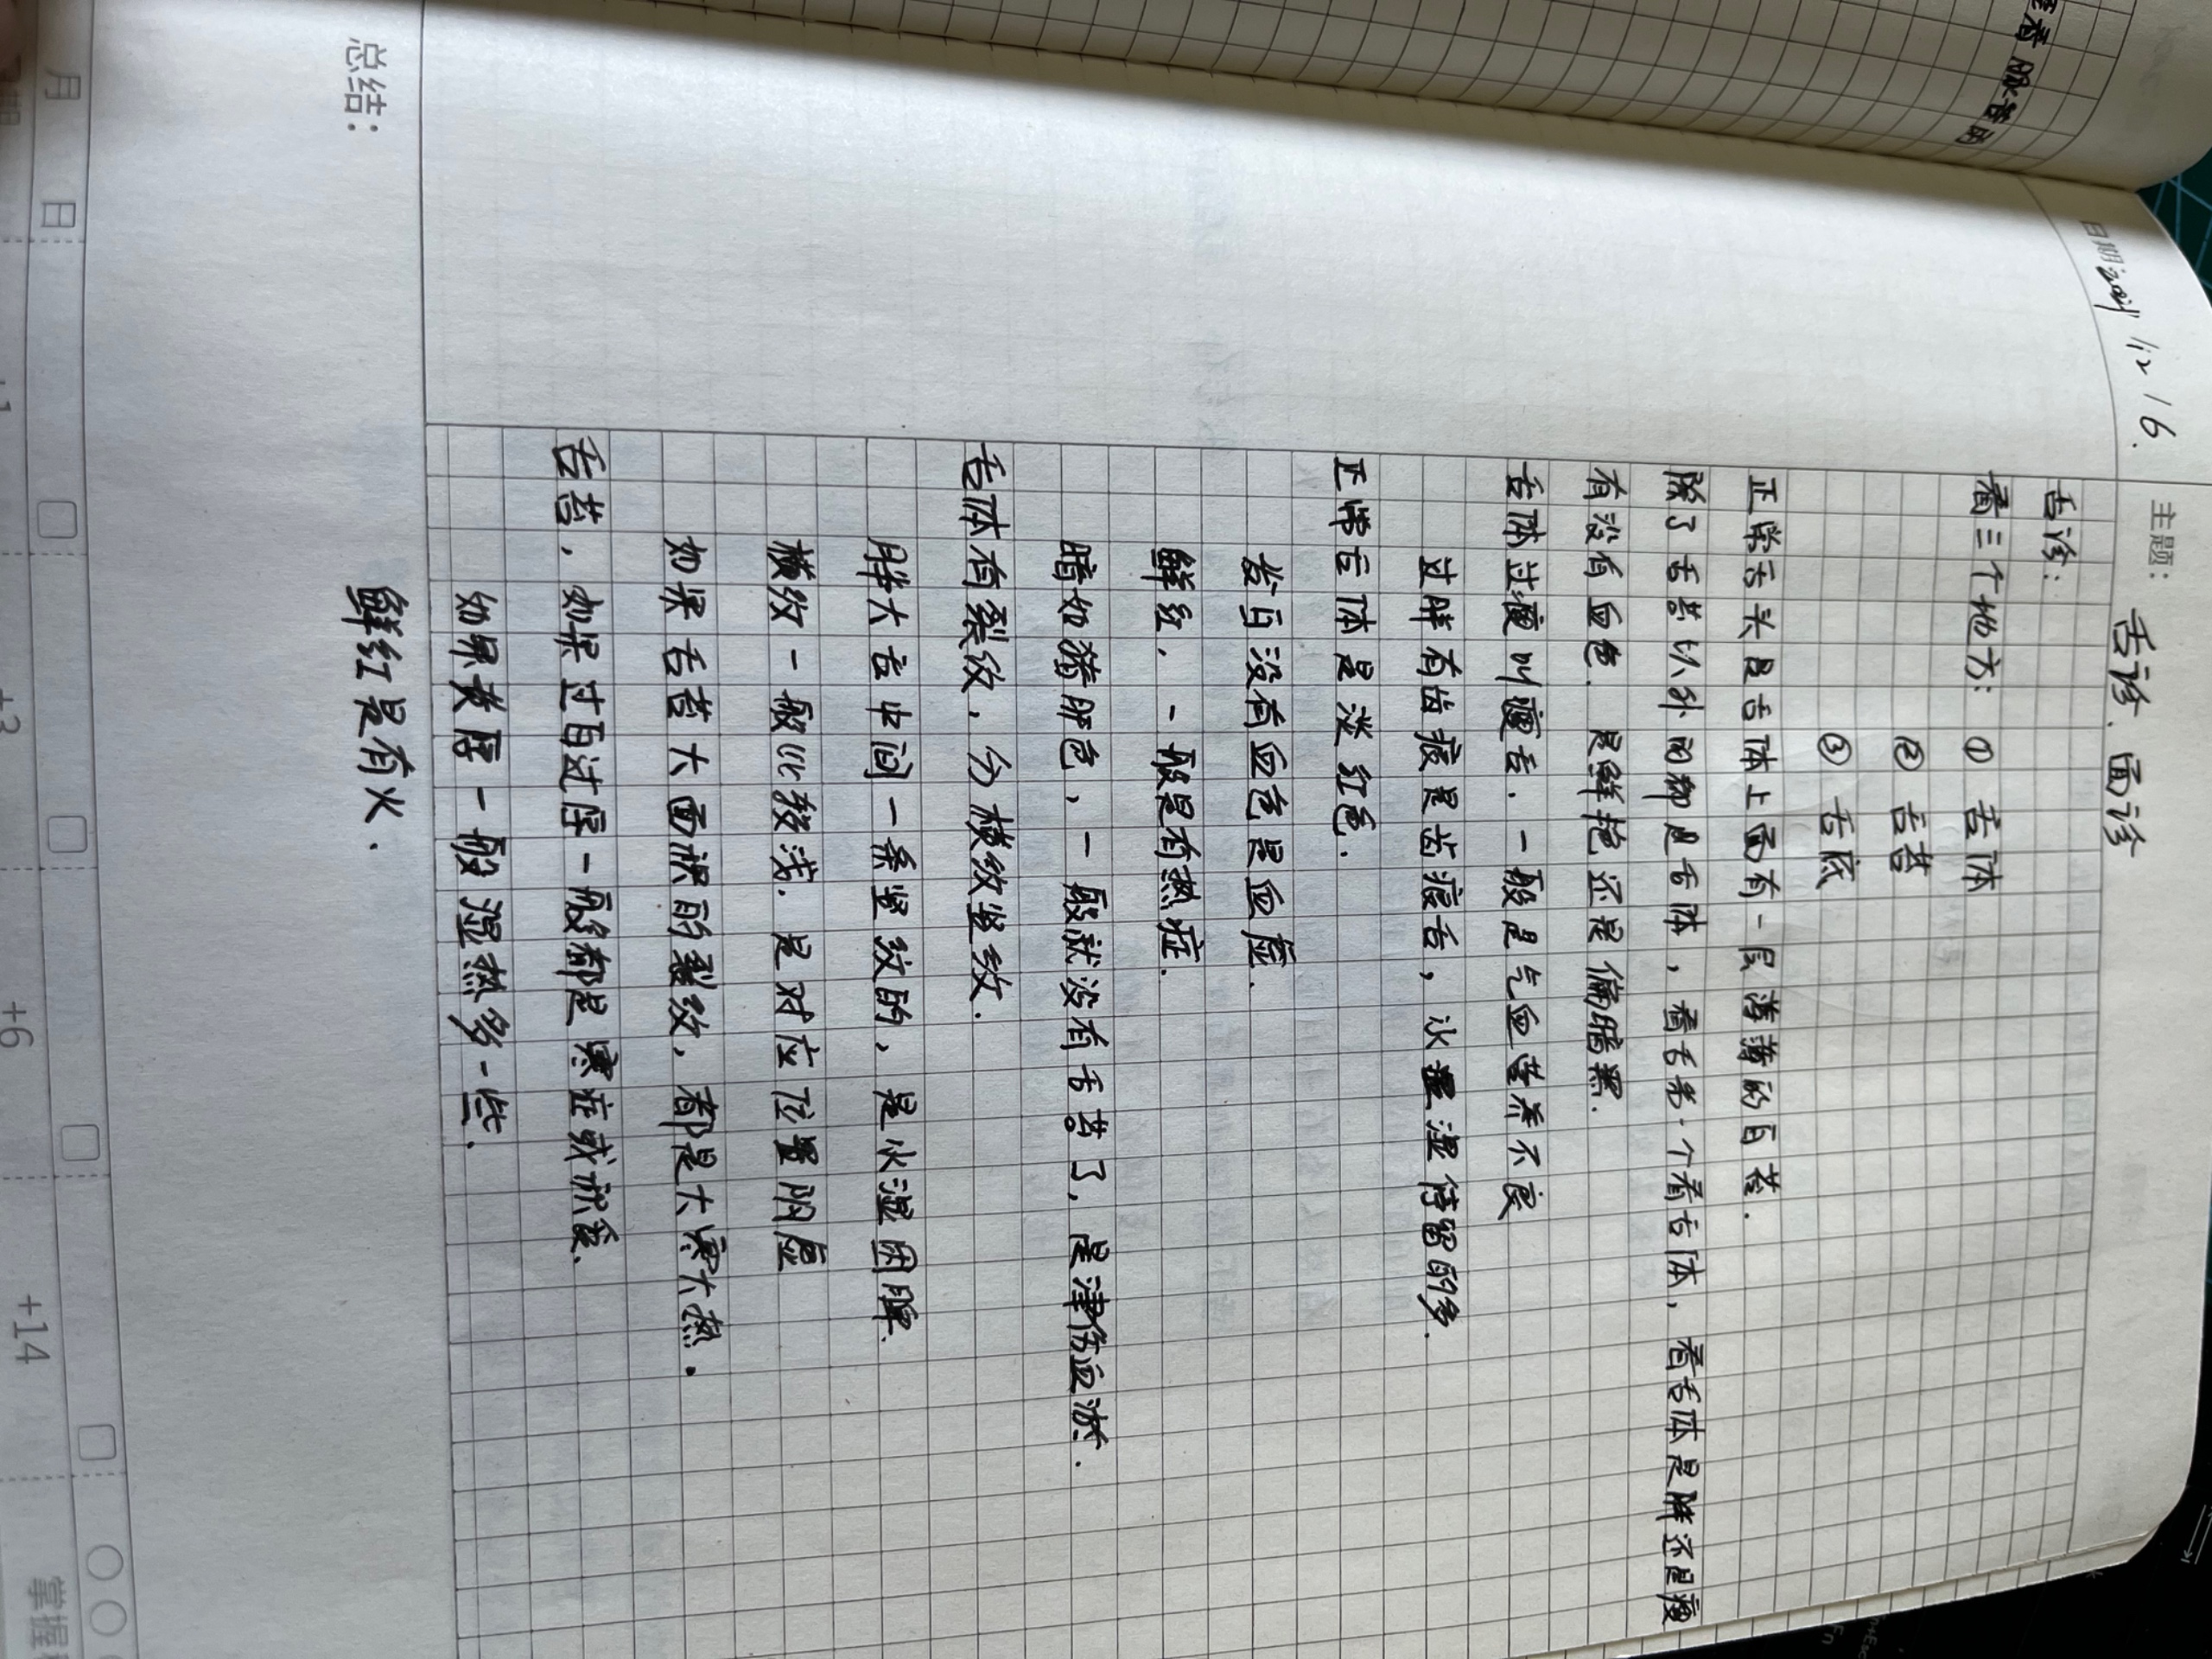 看 脉管的
日期 /12 /6.
主题: 舌诊、面诊
舌诊:
看三个地方: ① 舌体
② 舌苔
③ 舌底
正常舌头是舌体上面有一层薄薄的白苔.
除了舌苔以外的都是舌体, 看舌第一个看舌体, 看舌体是胖还是瘦
有没有血色. 是鲜艳还是偏暗黑.
舌体过瘦叫瘦舌. 一般是气血营养不良
过胖有齿痕是齿痕舌, 水湿停留的多.
正常舌体是淡红色.
发白没有血色是血虚.
鲜红. 一般是有热症.
暗如猪肝色, 一般就没有舌苔了, 是津伤血淤.
舌体有裂纹, 分横纹竖纹.
胖大舌中间一条竖纹的, 是水湿困脾.
横纹一般比较浅. 是对应位置阴虚
如果舌苔大面积的裂纹, 都是大寒大热.
舌苔, 如果过白过厚一般都是寒症或积食.
如果黄厚一般湿热多一些.
总结:
鲜红是有火.
月 日
+3 +6 +14
掌握
Fn